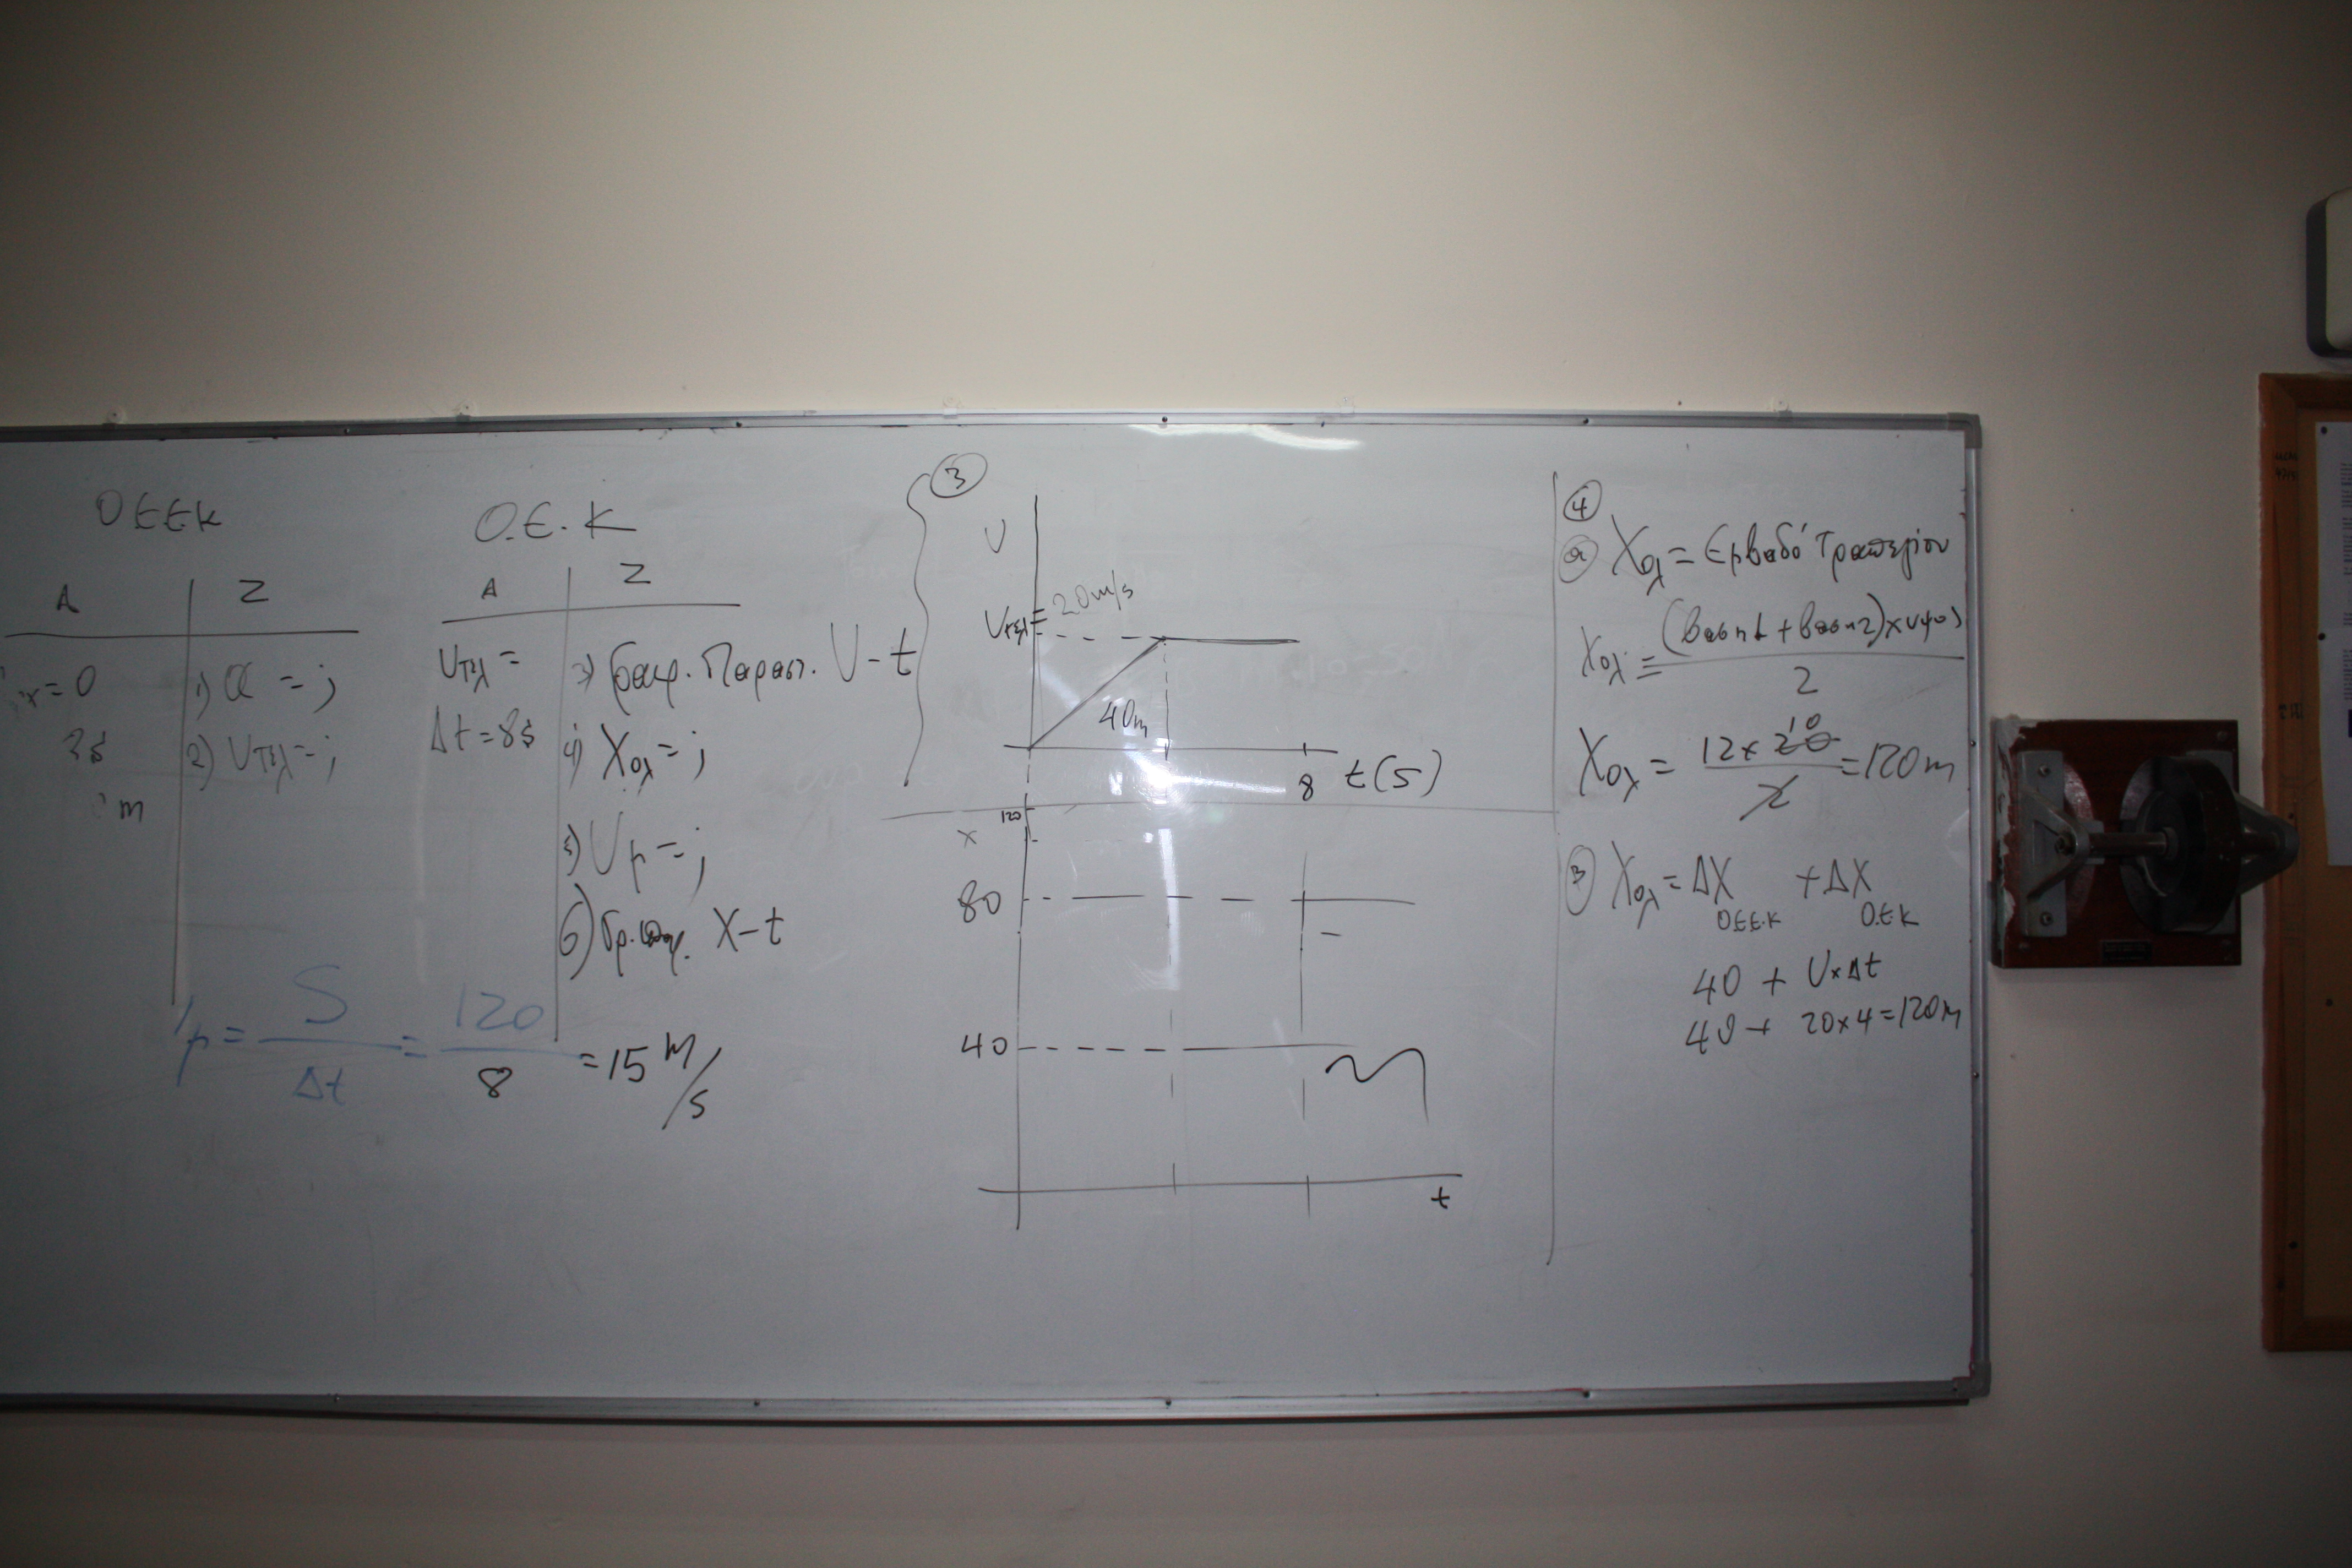 ΟΕΕΚ
Α Ζ
=0
1) α = ;
2) υτελ = ;
m
Ο.Ε.Κ
Α Ζ
υτελ =
Δt = 8s
3) Γραφ. Παρασ. U - t
4) Xολ = ;
5) Uμ = ;
6) X - t
μ = S/Δt = 120/8 = 15 m/s
③
U
Uτελ = 20 m/s
40m
8 t(s)
120
x
80
40
t
④
α) Xολ = Εμβαδό Τραπεζίου
Xολ = (βαση1 + βαση2) x υψος / 2
Xολ = 12 x 20 10 / 2 = 120 m
β) Xολ = ΔX Ο.Ε.Ε.Κ + ΔX Ο.Ε.Κ
40 + U x Δt
40 + 20 x 4 = 120 m